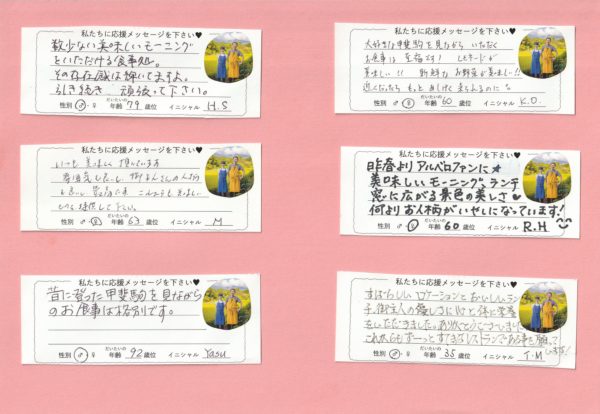 私たちに応援メッセージを下さい♥
数少ない美味しいモーニング
といただける食事処。
その存在感は輝いてますよ。
引き続き 頑張って下さい。
性別 ♂・♀ だいたいの年齢 79 歳位 イニシャル H.S
私たちに応援メッセージを下さい♥
いつも美味しく頂いています
性別 ♂・♀ だいたいの年齢 63 歳位 イニシャル M
私たちに応援メッセージを下さい♥
昔に登った甲斐駒を見ながら
のお食事は格別です。
性別 ♂・♀ だいたいの年齢 92 歳位 イニシャル Yasu
私たちに応援メッセージを下さい♥
大好きな甲斐駒を見ながら いただく
お食事は 至福です! レモネードが
美味しい!! 新鮮な お野菜が美味しい!!
近くだったら もっと 来られるのに
性別 ♂・♀ だいたいの年齢 60 歳位 イニシャル K.O.
私たちに応援メッセージを下さい♥
昨春よりアルベロファンに★
美味しいモーニング&ランチ
窓に広がる景色の美しさ♥
何よりお人柄がいやしになっています!
性別 ♂・♀ だいたいの年齢 60 歳位 イニシャル R.H
私たちに応援メッセージを下さい♥
すばらしいロケーションとおいしいラン
チ、御主人の優しさに心と体に栄養
をいただきました。ありがとうございました
これからもずーっとすてきなレストランである事を願って
います!
性別 ♂・♀ だいたいの年齢 35 歳位 イニシャル T.M